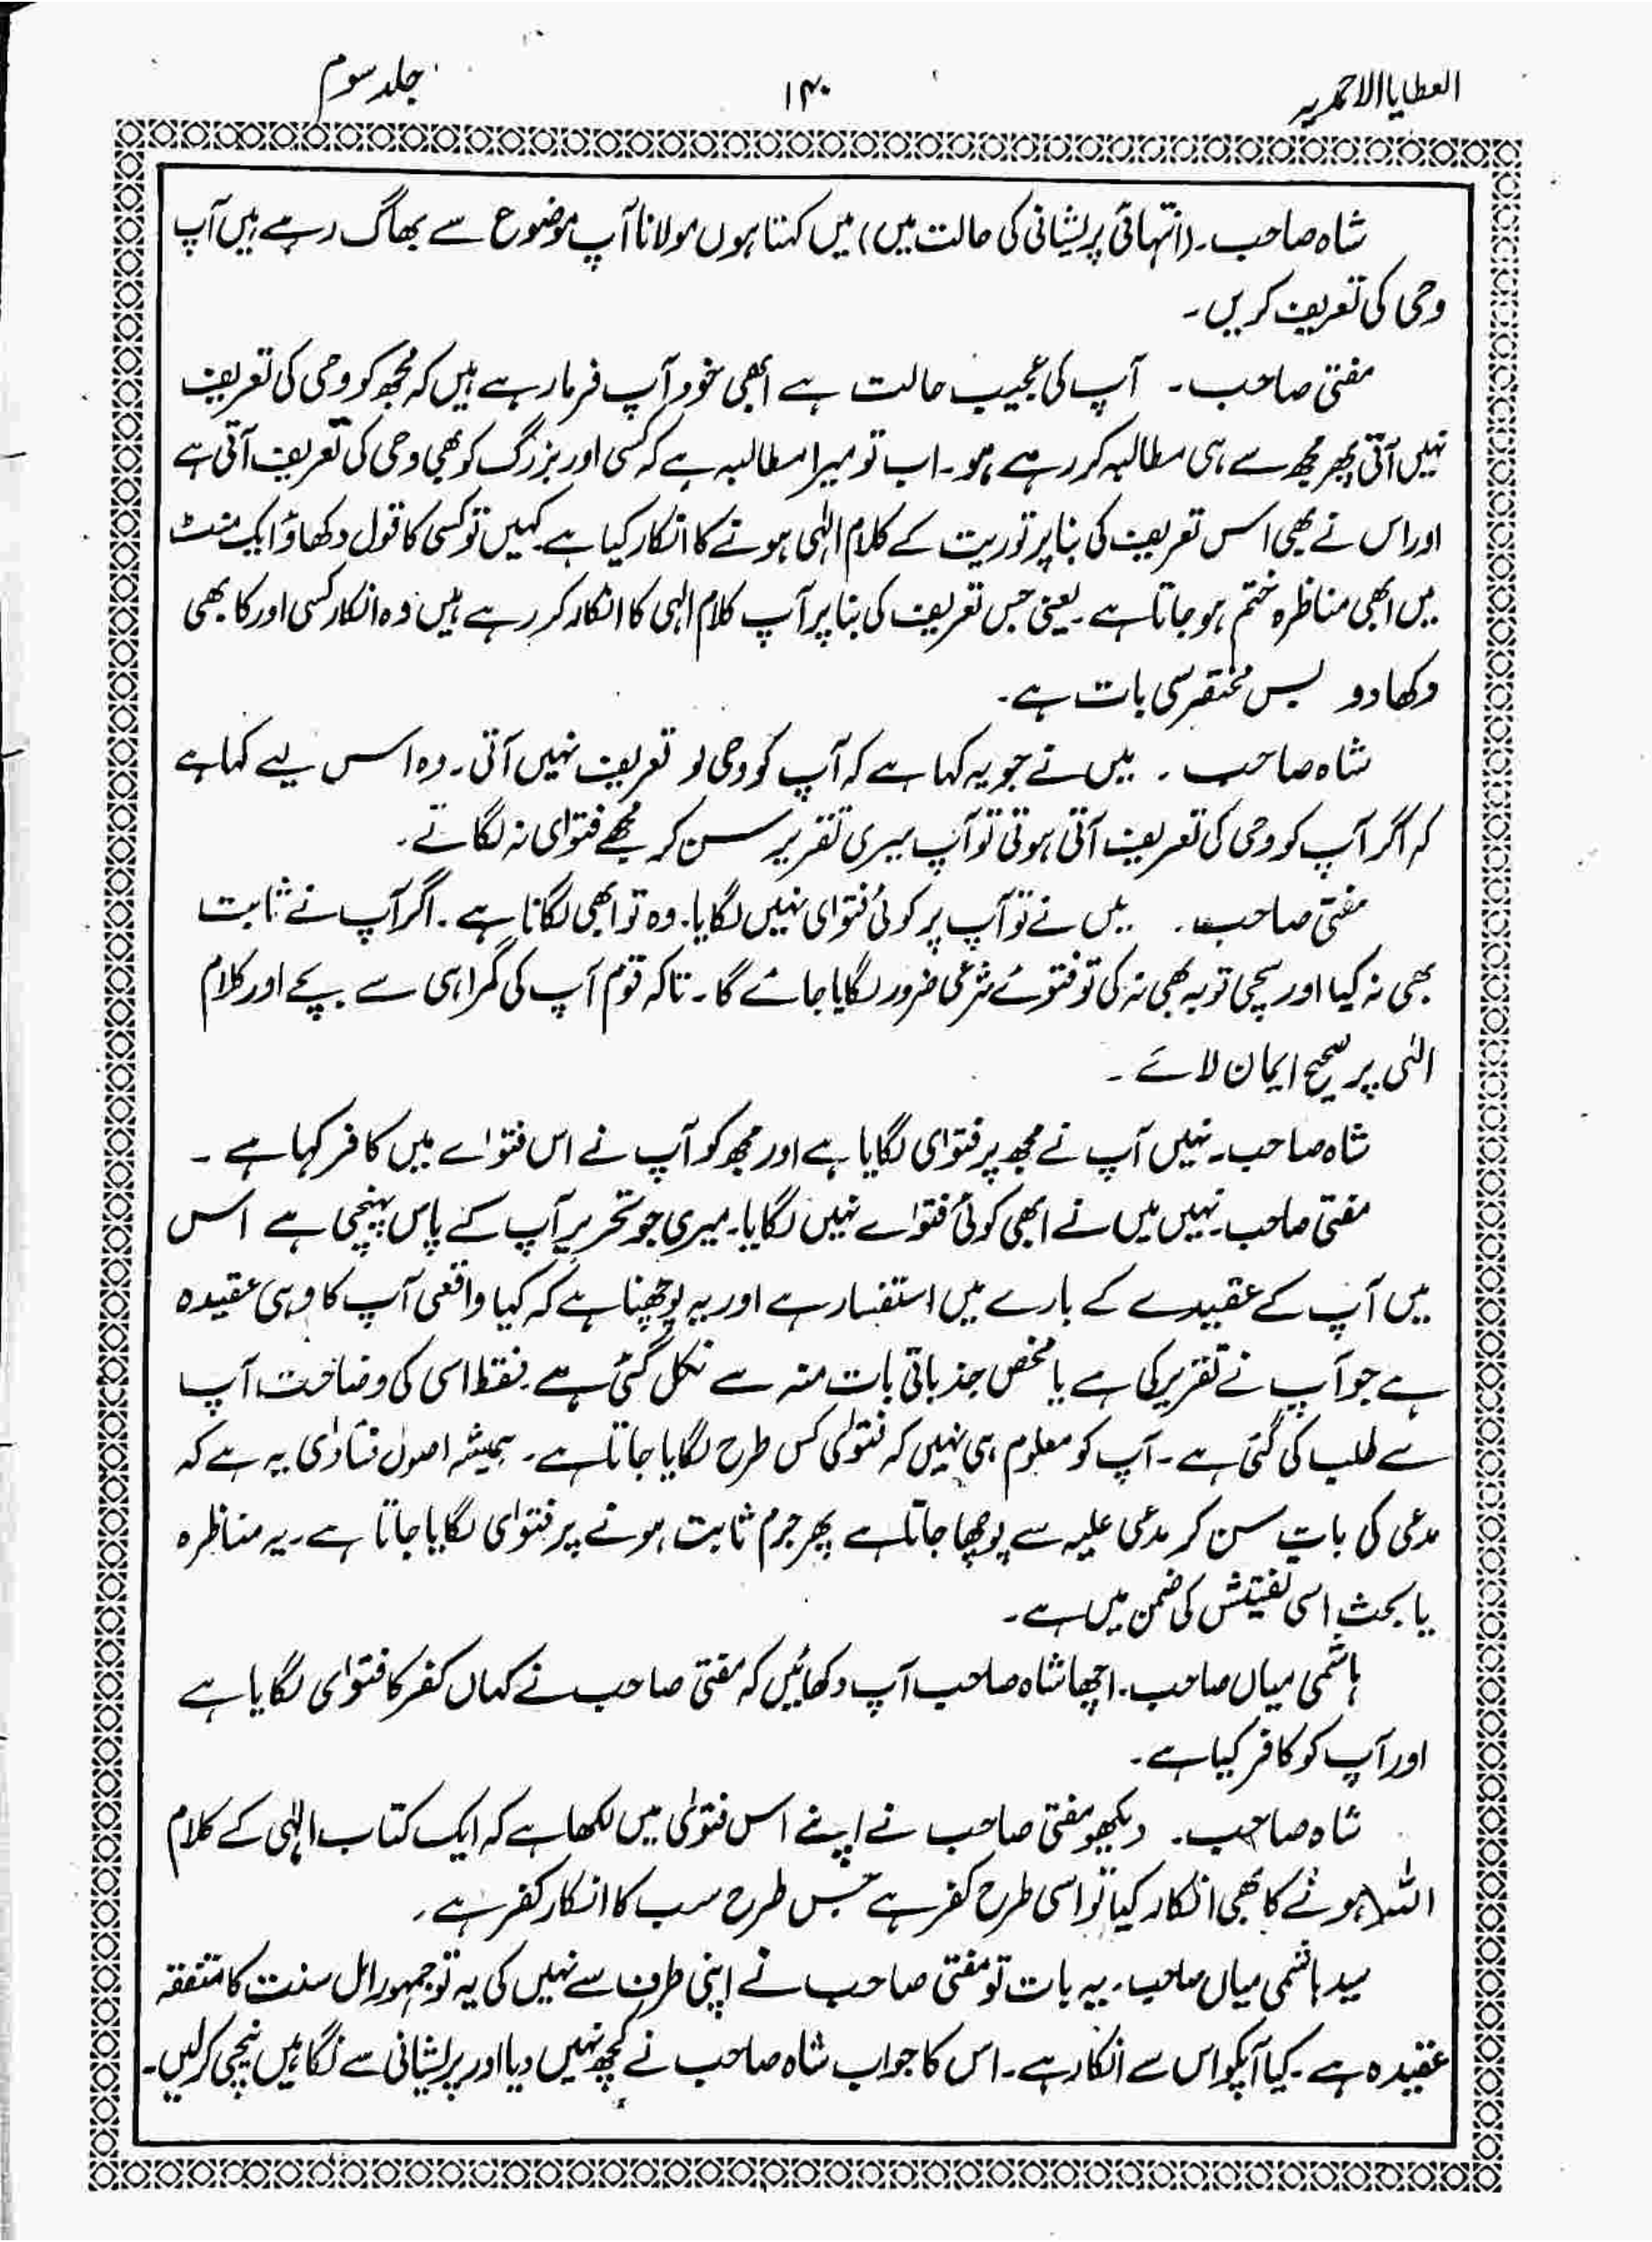 العطایا الاحمدیہ ۱۴۰ جلد سوم
شاہ صاحب۔ (انتہائی پریشانی کی حالت میں) میں کہتا ہوں مولانا آپ موضوع سے بھاگ رہے ہیں آپ
وحی کی تعریف کریں۔
مفتی صاحب۔ آپ کی عجیب حالت ہے ابھی خود آپ فرما رہے ہیں کہ مجھ کو وحی کی تعریف
نہیں آتی پھر مجھ سے ہی مطالبہ کر رہے ہو۔ اب تو میرا مطالبہ ہے کہ کسی اور بزرگ کو بھی وحی کی تعریف آتی ہے
اور اس نے بھی اس تعریف کی بنا پر توریت کے کلام الٰہی ہونے کا انکار کیا ہے کہیں تو کسی کا قول دکھاؤ ایک منٹ
میں ابھی مناظرہ ختم ہو جاتا ہے۔ یعنی جس تعریف کی بنا پر آپ کلام الٰہی کا انکار کر رہے ہیں وہ انکار کسی اور کا بھی
دکھا دو بس مختصر سی بات ہے۔
شاہ صاحب۔ میں نے جو یہ کہا ہے کہ آپ کو وحی لو تعریف نہیں آتی۔ وہ اس لیے کہا ہے
کہ اگر آپ کو وحی کی تعریف آتی ہوتی تو آپ میری تقریر سن کر مجھے فتوٰی نہ لگاتے۔
مفتی صاحب۔ میں نے تو آپ پر کوئی فتوٰی نہیں لگایا۔ وہ تو ابھی لگانا ہے۔ اگر آپ نے ثابت
بھی نہ کیا اور سچی توبہ بھی نہ کی تو فتوئے شرعی ضرور لگایا جائے گا۔ تاکہ قوم آپ کی گمراہی سے بچے اور کلام
الٰہی پر صحیح ایمان لائے۔
شاہ صاحب۔ نہیں آپ نے مجھ پر فتوٰی لگایا ہے اور مجھ کو آپ نے اس فتوٰے میں کافر کہا ہے۔
مفتی صاحب۔ نہیں میں نے ابھی کوئی فتوٰے نہیں لگایا۔ میری جو تحریر آپ کے پاس پہنچی ہے اس
میں آپ کے عقیدے کے بارے میں استفسار ہے اور یہ پوچھنا ہے کہ کیا واقعی آپ کا وہی عقیدہ
ہے جو آپ نے تقریر کی ہے یا محض جذباتی بات منہ سے نکل گئی ہے۔ فقط اسی کی وضاحت آپ
سے طلب کی گئی ہے۔ آپ کو معلوم ہی نہیں کہ فتوٰی کس طرح لگایا جاتا ہے۔ ہمیشہ اصول فتاوٰی یہ ہے کہ
مدعی کی بات سن کر مدعی علیہ سے پوچھا جاتا ہے پھر جرم ثابت ہونے پر فتوٰی لگایا جاتا ہے۔ یہ مناظرہ
یا بحث اسی تفتیش کی ضمن میں ہے۔
ہاشمی میاں صاحب۔ اچھا شاہ صاحب آپ دکھائیں کہ مفتی صاحب نے کہاں کفر کا فتوٰی لگایا ہے
اور آپ کو کافر کہا ہے۔
شاہ صاحب۔ دیکھو مفتی صاحب نے اپنے اس فتوٰی میں لکھا ہے کہ ایک کتاب الٰہی کے کلام
اللہ ہونے کا بھی انکار کیا تو اسی طرح کفر ہے جس طرح سب کا انکار کفر ہے۔
سید ہاشمی میاں صاحب۔ یہ بات تو مفتی صاحب نے اپنی طرف سے نہیں کی یہ تو جمہور اہل سنت کا متفقہ
عقیدہ ہے۔ کیا آپکو اس سے انکار ہے۔ اس کا جواب شاہ صاحب نے کچھ نہیں دیا اور پریشانی سے نگاہیں نیچی کر لیں۔